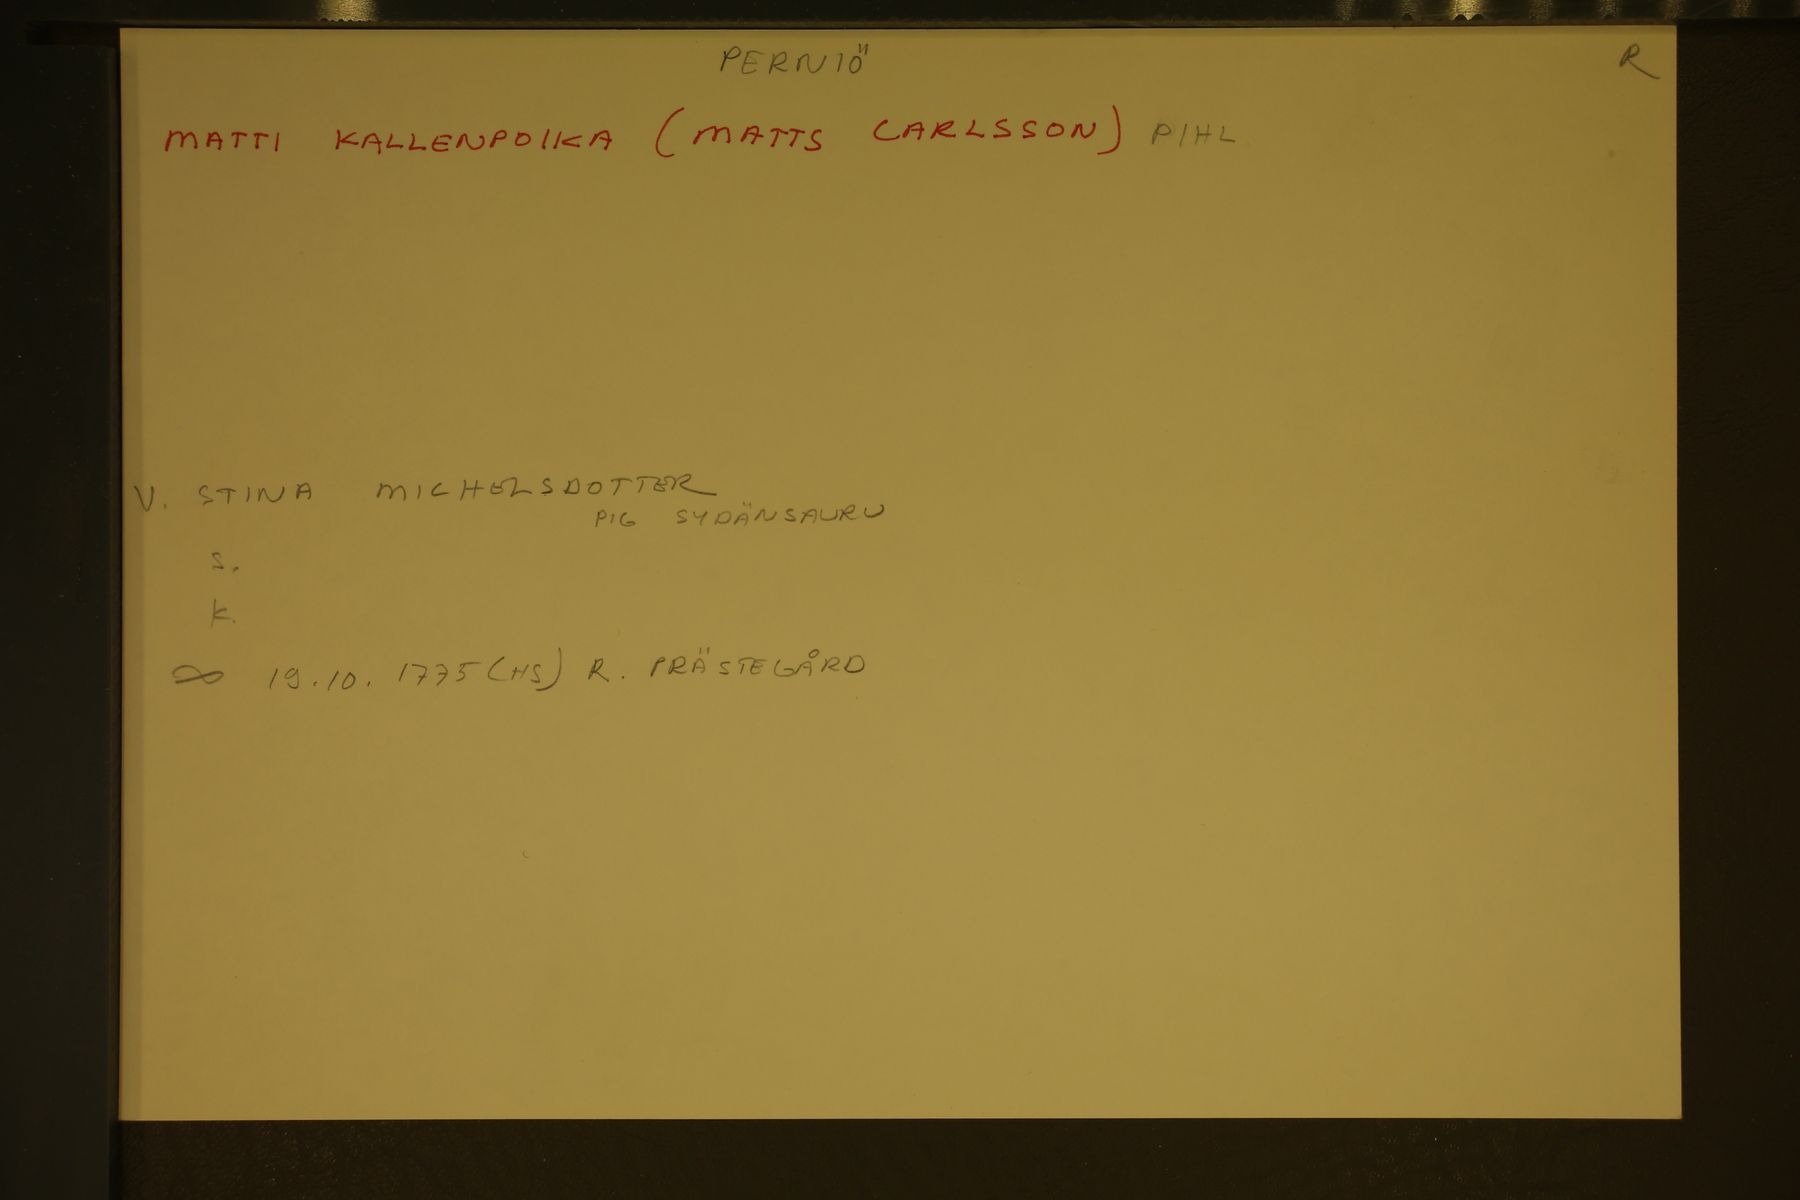 PERNIÖ R
MATTI KALLENPOIKA (MATTS CARLSSON) PIHL
V. STINA MICHELSDOTTER
PIG SYDÄNSAURU
S.
K.
∞ 19.10.1775 (HS) R. PRÄSTEGÅRD